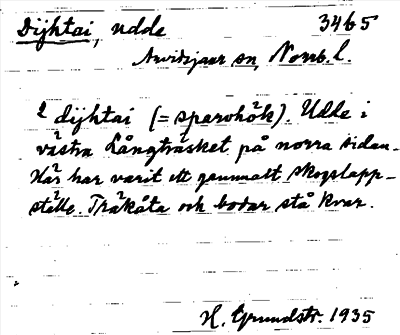 Dijhtai, udde 3465
Arvidsjaur sn, Norrb. l.
dijhtai (= sparvhök). Udde i
västra Långträsket på norra sidan.
Här har varit ett gammalt skogslapp-
ställe. Träkåta och bodar stå kvar.
H. Grundstr. 1935